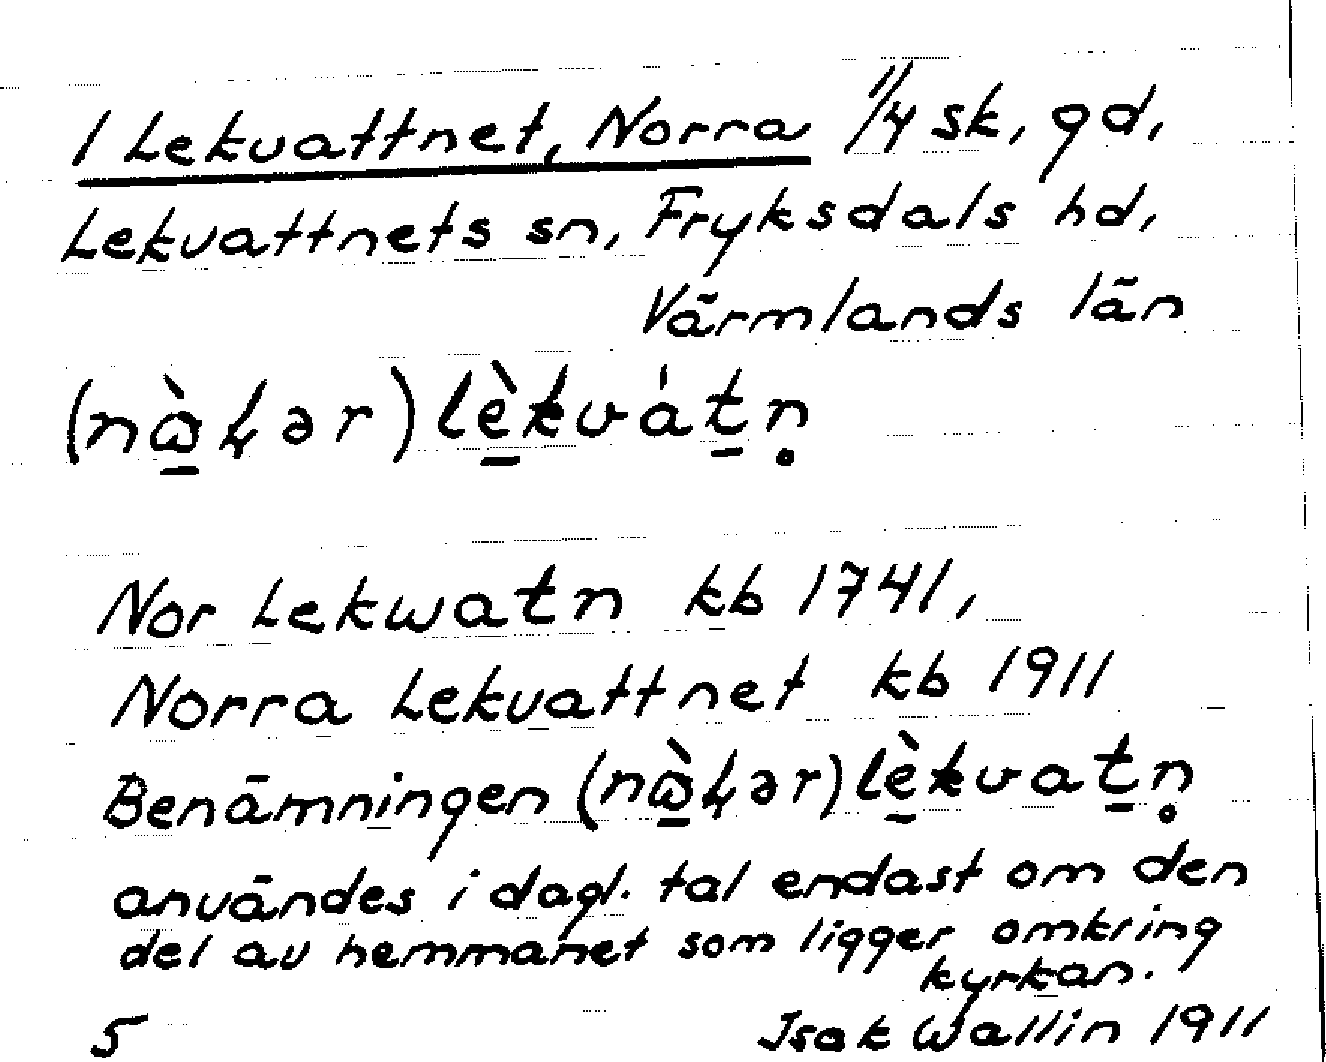 1 Lekvattnet, Norra 1/4 sk, gd,
Lekvattnets sn, Fryksdals hd,
Värmlands län
lèkvát̲n̥
Nor Lekwatn kb 1741,
Norra Lekvattnet kb 1911
Benämningen lèkvat̲n̥
användes i dagl. tal endast om den
del av hemmanet som ligger omkring
kyrkan.
5 Isak Wallin 1911